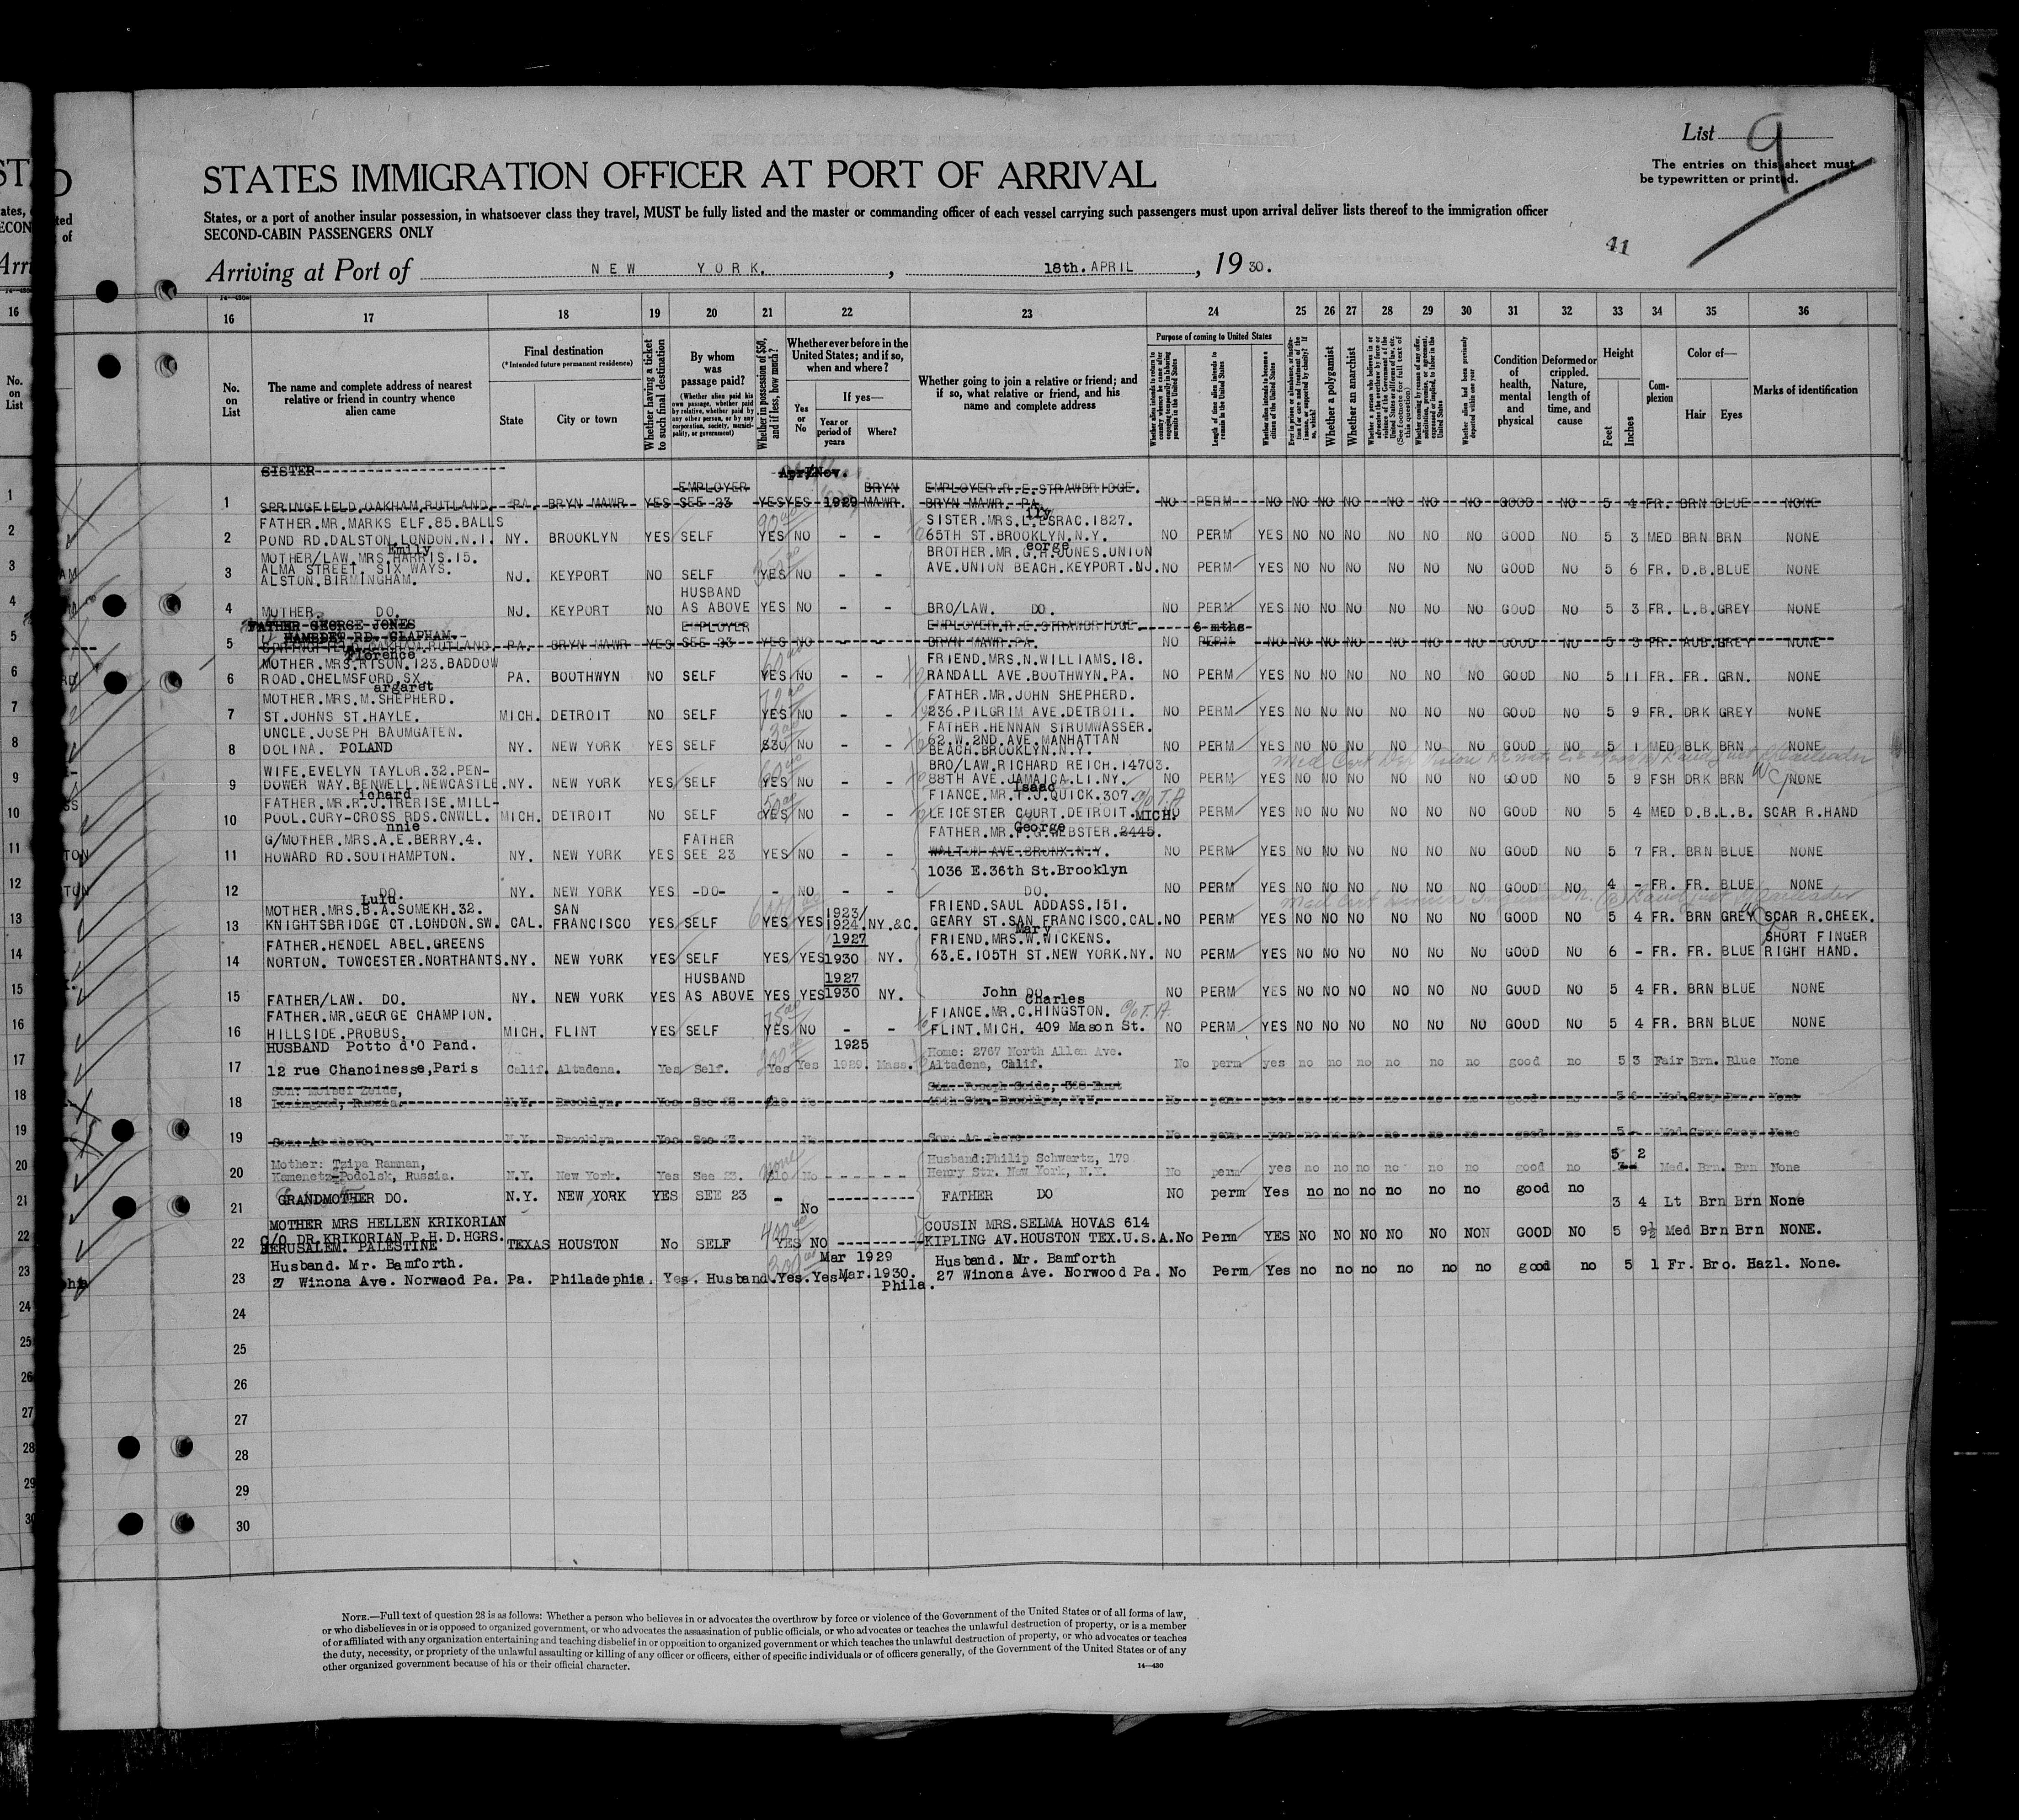 List 9
The entries on this sheet must
be typewritten or printed.
STATES IMMIGRATION OFFICER AT PORT OF ARRIVAL
States, or a port of another insular possession, in whatsoever class they travel, MUST be fully listed and the master or commanding officer of each vessel carrying such passengers must upon arrival deliver lists thereof to the immigration officer
SECOND-CABIN PASSENGERS ONLY
41
Arriving at Port of NEW YORK. , 18th. APRIL , 19 30.
16 17 18 19 20 21 22 23 24 25 26 27 28 29 30 31 32 33 34 35 36
No. on List
The name and complete address of nearest relative or friend in country whence alien came
Final destination
(*Intended future permanent residence)
State
City or town
Whether having a ticket to such final destination
By whom was passage paid?
(Whether alien paid his own passage, whether paid by relative, whether paid by any other person, or by any corporation, society, municipality, or government)
Whether in possession of $50, and if less, how much?
Whether ever before in the United States; and if so, when and where?
Yes or No
If yes—
Year or period of years
Where?
Whether going to join a relative or friend; and if so, what relative or friend, and his name and complete address
Purpose of coming to United States
Length of time alien intends to remain in the United States
Whether alien intends to become a citizen of the United States
Whether a polygamist
Whether an anarchist
Whether alien had been previously deported within one year
Condition of health, mental and physical
Deformed or crippled. Nature, length of time, and cause
Height
Feet
Inches
Complexion
Color of—
Hair
Eyes
Marks of identification
SISTER Apr/Nov.
EMPLOYER BRYN EMPLOYER.R.E.STRAWBRIDGE.
1 SPRINGFIELD.OAKHAM.RUTLAND. PA. BRYN MAWR YES SEE 23 YES YES 1929 MAWR. BRYN MAWR. PA. NO PERM NO NO NO NO NO NO GOOD NO 5 4 FR. BRN BLUE NONE
FATHER.MR.MARKS ELF.85.BALLS SISTER.MRS.L.ESRAC.1827.
2 POND RD.DALSTON.LONDON.N.1. NY. BROOKLYN YES SELF YES NO - - 65TH ST.BROOKLYN.N.Y. NO PERM YES NO NO NO NO NO NO GOOD NO 5 3 MED BRN BRN NONE
Emily eorge
MOTHER/LAW.MRS.HARRIS.15. BROTHER.MR.G.H.JONES.UNION
3 ALMA STREET. SIX WAYS. NJ. KEYPORT NO SELF YES NO - - AVE.UNION BEACH.KEYPORT.NJ. NO PERM YES NO NO NO NO NO NO GOOD NO 5 6 FR. D.B. BLUE NONE
ALSTON.BIRMINGHAM.
HUSBAND
4 MOTHER. DO. NJ. KEYPORT NO AS ABOVE YES NO - - BRO/LAW. DO. NO PERM YES NO NO NO NO NO NO GOOD NO 5 3 FR. L.B. GREY NONE
FATHER GEORGE JONES EMPLOYER EMPLOYER.R.E.STRAWBRIDGE. 6 mths
5 SPRINGFIELD.OAKHAM.RUTLAND. PA. BRYN MAWR YES SEE 23 YES NO - - BRYN MAWR.PA. NO PERM NO NO NO NO NO NO NO GOOD NO 5 3 FR. AUB. GREY NONE
Florence
MOTHER.MRS.RISON.123.BADDOW FRIEND.MRS.N.WILLIAMS.18.
6 ROAD.CHELMSFORD.SX. PA. BOOTHWYN NO SELF YES NO - - RANDALL AVE.BOOTHWYN.PA. NO PERM YES NO NO NO NO NO NO GOOD NO 5 11 FR. FR. GRN. NONE
argaret
MOTHER.MRS.M.SHEPHERD. FATHER.MR.JOHN SHEPHERD.
7 ST.JOHNS ST.HAYLE. MICH. DETROIT NO SELF YES NO - - 236.PILGRIM AVE.DETROIT. NO PERM YES NO NO NO NO NO NO GOOD NO 5 9 FR. DRK GREY NONE
UNCLE.JOSEPH BAUMGATEN. FATHER.HENNAN STRUMWASSER.
8 DOLINA. POLAND NY. NEW YORK YES SELF $30 NO - - 62.W.2ND.AVE.MANHATTAN NO PERM YES NO NO NO NO NO NO GOOD NO 5 1 MED BLK BRN NONE
BEACH.BROOKLYN.N.Y.
WIFE.EVELYN TAYLOR.32.PEN- BRO/LAW.RICHARD REICH.14703.
9 DOWER WAY.BENWELL.NEWCASTLE. NY. NEW YORK YES SELF YES NO - - 88TH AVE.JAMAICA.LI.NY. NO PERM YES NO NO NO NO NO NO GOOD NO 5 9 FSH DRK BRN NONE
ichard Isaac
FATHER.MR.R.J.TRERISE.MILL- FIANCE.MR.T.J.QUICK.307.
10 POOL.CURY-CROSS RDS.CNWLL. MICH. DETROIT NO SELF YES NO - - LEICESTER COURT.DETROIT.MICH. NO PERM YES NO NO NO NO NO NO GOOD NO 5 4 MED D.B. L.B. SCAR R.HAND
nnie George
G/MOTHER.MRS.A.E.BERRY.4. FATHER FATHER.MR.F.G.WEBSTER.2445.
11 HOWARD RD.SOUTHAMPTON. NY. NEW YORK YES SEE 23 YES NO - - WALTON AVE.BRONX.N.Y. NO PERM YES NO NO NO NO NO NO GOOD NO 5 7 FR. BRN BLUE NONE
1036 E.36th St.Brooklyn
12 DO. NY. NEW YORK YES -DO- - NO - - DO. NO PERM YES NO NO NO NO NO NO GOOD NO 4 - FR. FR. BLUE NONE
Lulu.
MOTHER.MRS.B.A.SOMEKH.32. SAN 1923/ FRIEND.SAUL ADDASS.151.
13 KNIGHTSBRIDGE CT.LONDON.SW. CAL. FRANCISCO YES SELF YES YES 1924. NY.&C. GEARY ST.SAN FRANCISCO.CAL. NO PERM YES NO NO NO NO NO NO GOOD NO 5 4 FR. BRN GREY SCAR R.CHEEK.
Mary
FATHER.HENDEL ABEL.GREENS 1927 FRIEND.MRS.W.WICKENS. SHORT FINGER
14 NORTON. TOWCESTER.NORTHANTS. NY. NEW YORK YES SELF YES YES 1930 NY. 63.E.105TH ST.NEW YORK.NY. NO PERM YES NO NO NO NO NO NO GOOD NO 6 - FR. FR. BLUE RIGHT HAND.
HUSBAND 1927
15 FATHER/LAW. DO. NY. NEW YORK YES AS ABOVE YES YES 1930 NY. DO. NO PERM YES NO NO NO NO NO NO GOOD NO 5 4 FR. BRN BLUE NONE
John Charles
FATHER.MR.GEORGE CHAMPION. FIANCE.MR.C.HINGSTON.
16 HILLSIDE.PROBUS. MICH. FLINT YES SELF YES NO - - FLINT.MICH. 409 Mason St. NO PERM YES NO NO NO NO NO NO GOOD NO 5 4 FR. BRN BLUE NONE
HUSBAND Potto d'O Pand. 1925 Home: 2767 North Allen Ave.
17 12 rue Chanoinesse,Paris Calif. Altadena. Yes Self. Yes Yes 1929. Mass. Altadena, Calif. No perm yes no no no no no no good no 5 3 Fair Brn. Blue None
Son. Joseph Seide, 368 East
18 Leningrad, Russia. N.Y. Brooklyn. Yes See 23 $10 No 49th Str. Brooklyn, N.Y. No perm yes no no no no no no good no 5 6 Med. Grey Brn. None
19 Son: As above. N.Y. Brooklyn. Yes See 23. No Son: As above No perm yes no no no no no no good no 5 - Med. Grey Grey None
Mother: Tzipa Ramman, none Husband:Philip Schwartz, 179 5 2
20 Kamenetz-Podolsk, Russia. N.Y. New York. Yes See 23. $10 No Henry Str. New York, N.Y. No perm yes no no no no no no good no Med. Brn. Brn None
21 GRANDMOTHER DO. N.Y. NEW YORK YES SEE 23 - No FATHER DO NO perm Yes no no no no no no good no 3 4 Lt Brn Brn None
MOTHER MRS HELLEN KRIKORIAN COUSIN MRS.SELMA HOVAS 614
C/O DR.KRIKORIAN P.H.D.HGRS.
22 JERUSALEM. PALESTINE TEXAS HOUSTON No SELF YES NO KIPLING AV.HOUSTON TEX.U.S.A. No Perm YES NO NO NO NO NO NON GOOD NO 5 9½ Med Brn Brn NONE.
Husband. Mr. Bamforth. Mar 1929 Husband. Mr. Bamforth
23 27 Winona Ave. Norwood Pa. Pa. Philadephia. Yes. Husband. Yes. Yes. Mar.1930. 27 Winona Ave. Norwood Pa. No Perm Yes no no no no no no good no 5 1 Fr. Bro. Hazl. None.
Phila.
24
25
26
27
28
29
30
NOTE.—Full text of question 28 is as follows: Whether a person who believes in or advocates the overthrow by force or violence of the Government of the United States or of all forms of law,
or who disbelieves in or is opposed to organized government, or who advocates the assassination of public officials, or who advocates or teaches the unlawful destruction of property, or is a member
of or affiliated with any organization entertaining and teaching disbelief in or opposition to organized government or which teaches the unlawful destruction of property, or who advocates or teaches
the duty, necessity, or propriety of the unlawful assaulting or killing of any officer or officers, either of specific individuals or of officers generally, of the Government of the United States or of any
other organized government because of his or their official character.
14—430